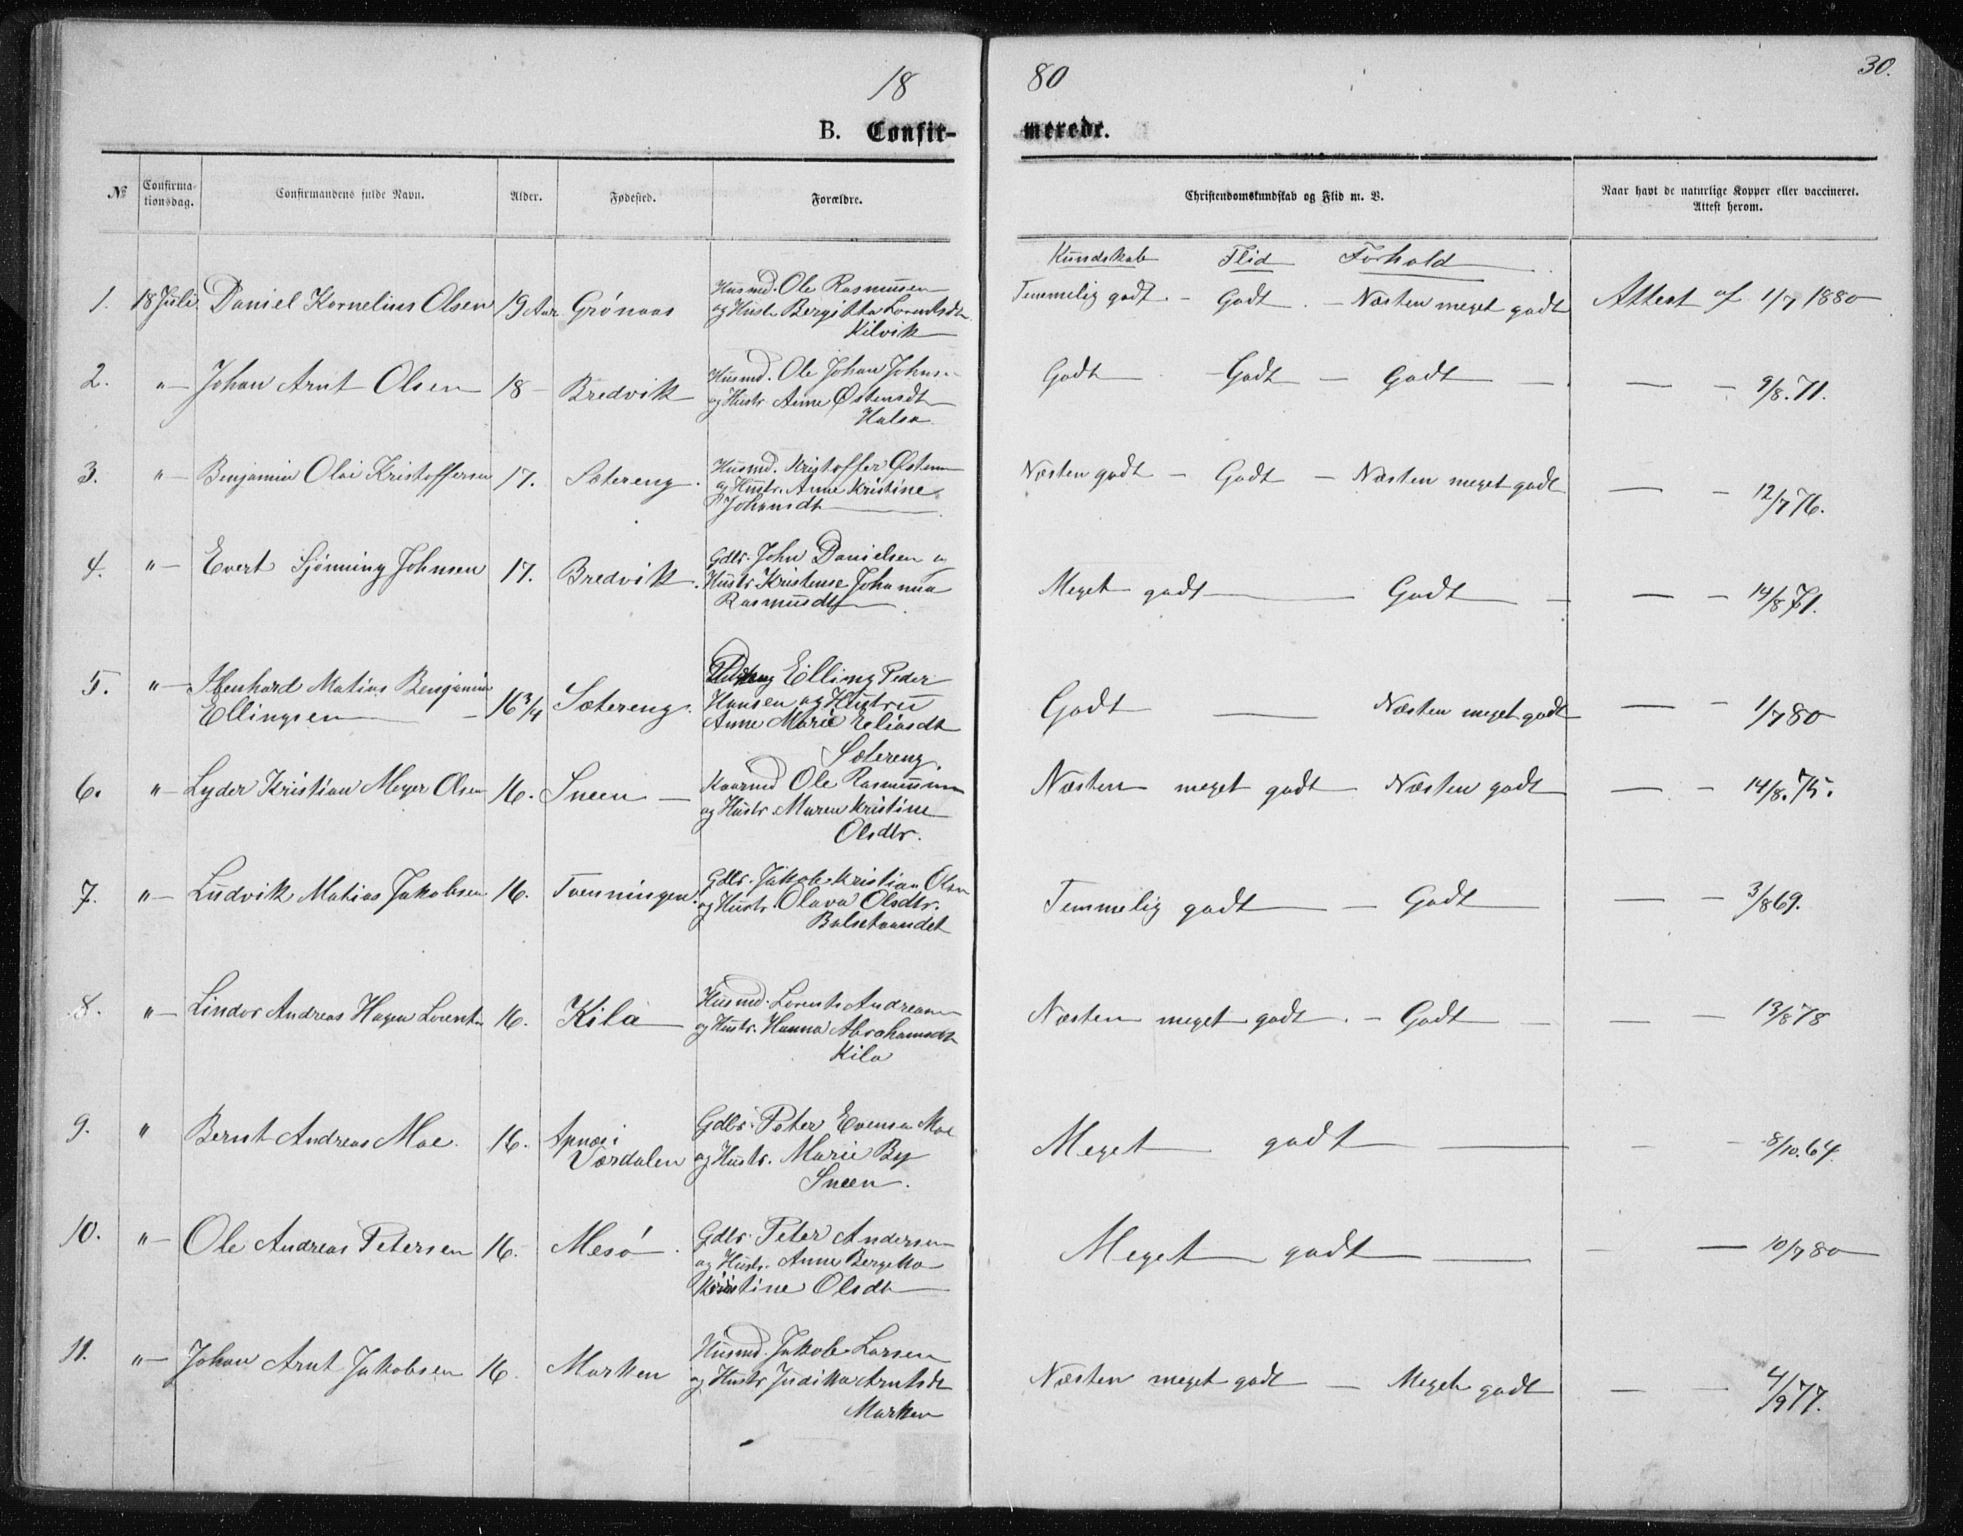 18 80 30.
B. Confir- merede.
№ Confirmationsdag. Confirmandens fulde Navn. Alder. Fødested. Forældre. Christendomskundskab og Flid m. V. Naar havt de naturlige Kopper eller vaccineret. Attest herom.
Kundskab Flid Forhold
1. 18 Juli. Daniel Kornelius Olsen 19 Aar Grønaas Husmd. Ole Rasmussen Temmelig godt. - Godt. - Næsten meget godt Attest af 1/7 1880
og Hustr Bergitta Lorentsdtr.
Kilvik
2. "- Johan Arnt Olsen 18 - Bredvik Husmd. Ole Johan Johns. Godt - Godt - Godt - — - 9/8.71.
og Hustr Anne Østensdt
Halsa.
3. "- Benjamin Olai Kristoffersen 17. Sætereng. Husmd. Kristoffer Østen Næsten godt - Godt - Næsten meget godt — - 12/7 76.
og Hustr. Anne Kristine
Johansdt
4. "- Evert Sjønning Johnsen 17. Bredvik. Gdbr. John Danielsen og Meget godt — Godt — — - 14/8 71.
Hustr Kristense Johanna
Rasmusdt
5. "- Ibenhard Matias Benjamin 16 3/4 Sætereng. Eilling Peder Godt — Næsten meget godt — - 1/7 80
Ellingsen Hansen og Hustru
Anne Marie Eliasdt
Sætereng.
6. "- Lyder Kristian Meyer Olsen 16. Sneen — Kaarmd Ole Rasmussen Næsten meget godt Næsten godt — - 14/8.75.
og Hustr Maren Kristine
Olsdtr.
7. "- Ludvik Matias Jakobsen 16. Tvenningen. Gdbr. Jakob Kristian Olsen Temmelig godt — Godt — — - 3/8 69.
og Hustr. Olava Olsdtr.
Balsetvandet
8. "- Lindor Andreas Hagen Lorents. 16. Kila Husmd. Lorents Andreasen Næsten meget godt. - Godt — — - 13/8 78
og Hustr. Hanna Abrahamsdt
Kila
9. " Bernt Andreas Moe. 16. i Gdbr. Peter Evensen Moe Meget godt — - - 8/10.64.
Værdalen og Hustr. Marie By
Sneen.
10. "- Ole Andreas Petersen 16. Mesø. Gdbr. Peter Andersen Meget godt — - — 10/7 80
og Hustr. Anne Bergitta
Kristine Olsdt
11. "- Johan Arnt Jakobsen 16. Marken Husmd. Jakob Larsen Næsten meget godt — Meget godt — - 4/9 77.
og Hustr Judikka Arntsdt
Marken